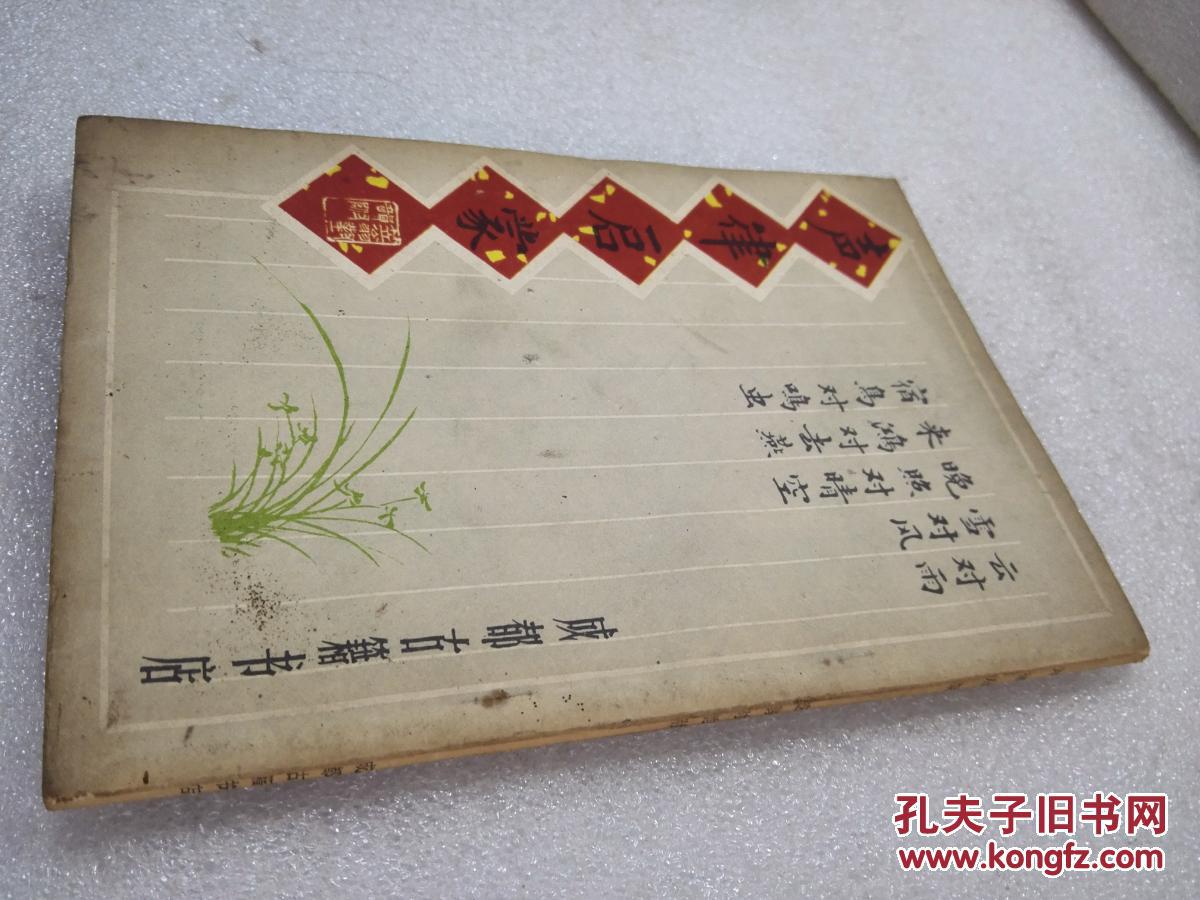 声律启蒙
云对雨
雪对风
晚照对晴空
来鸿对去燕
宿鸟对鸣虫
成都古籍书店
成都古籍书店
孔夫子旧书网
www.kongfz.com